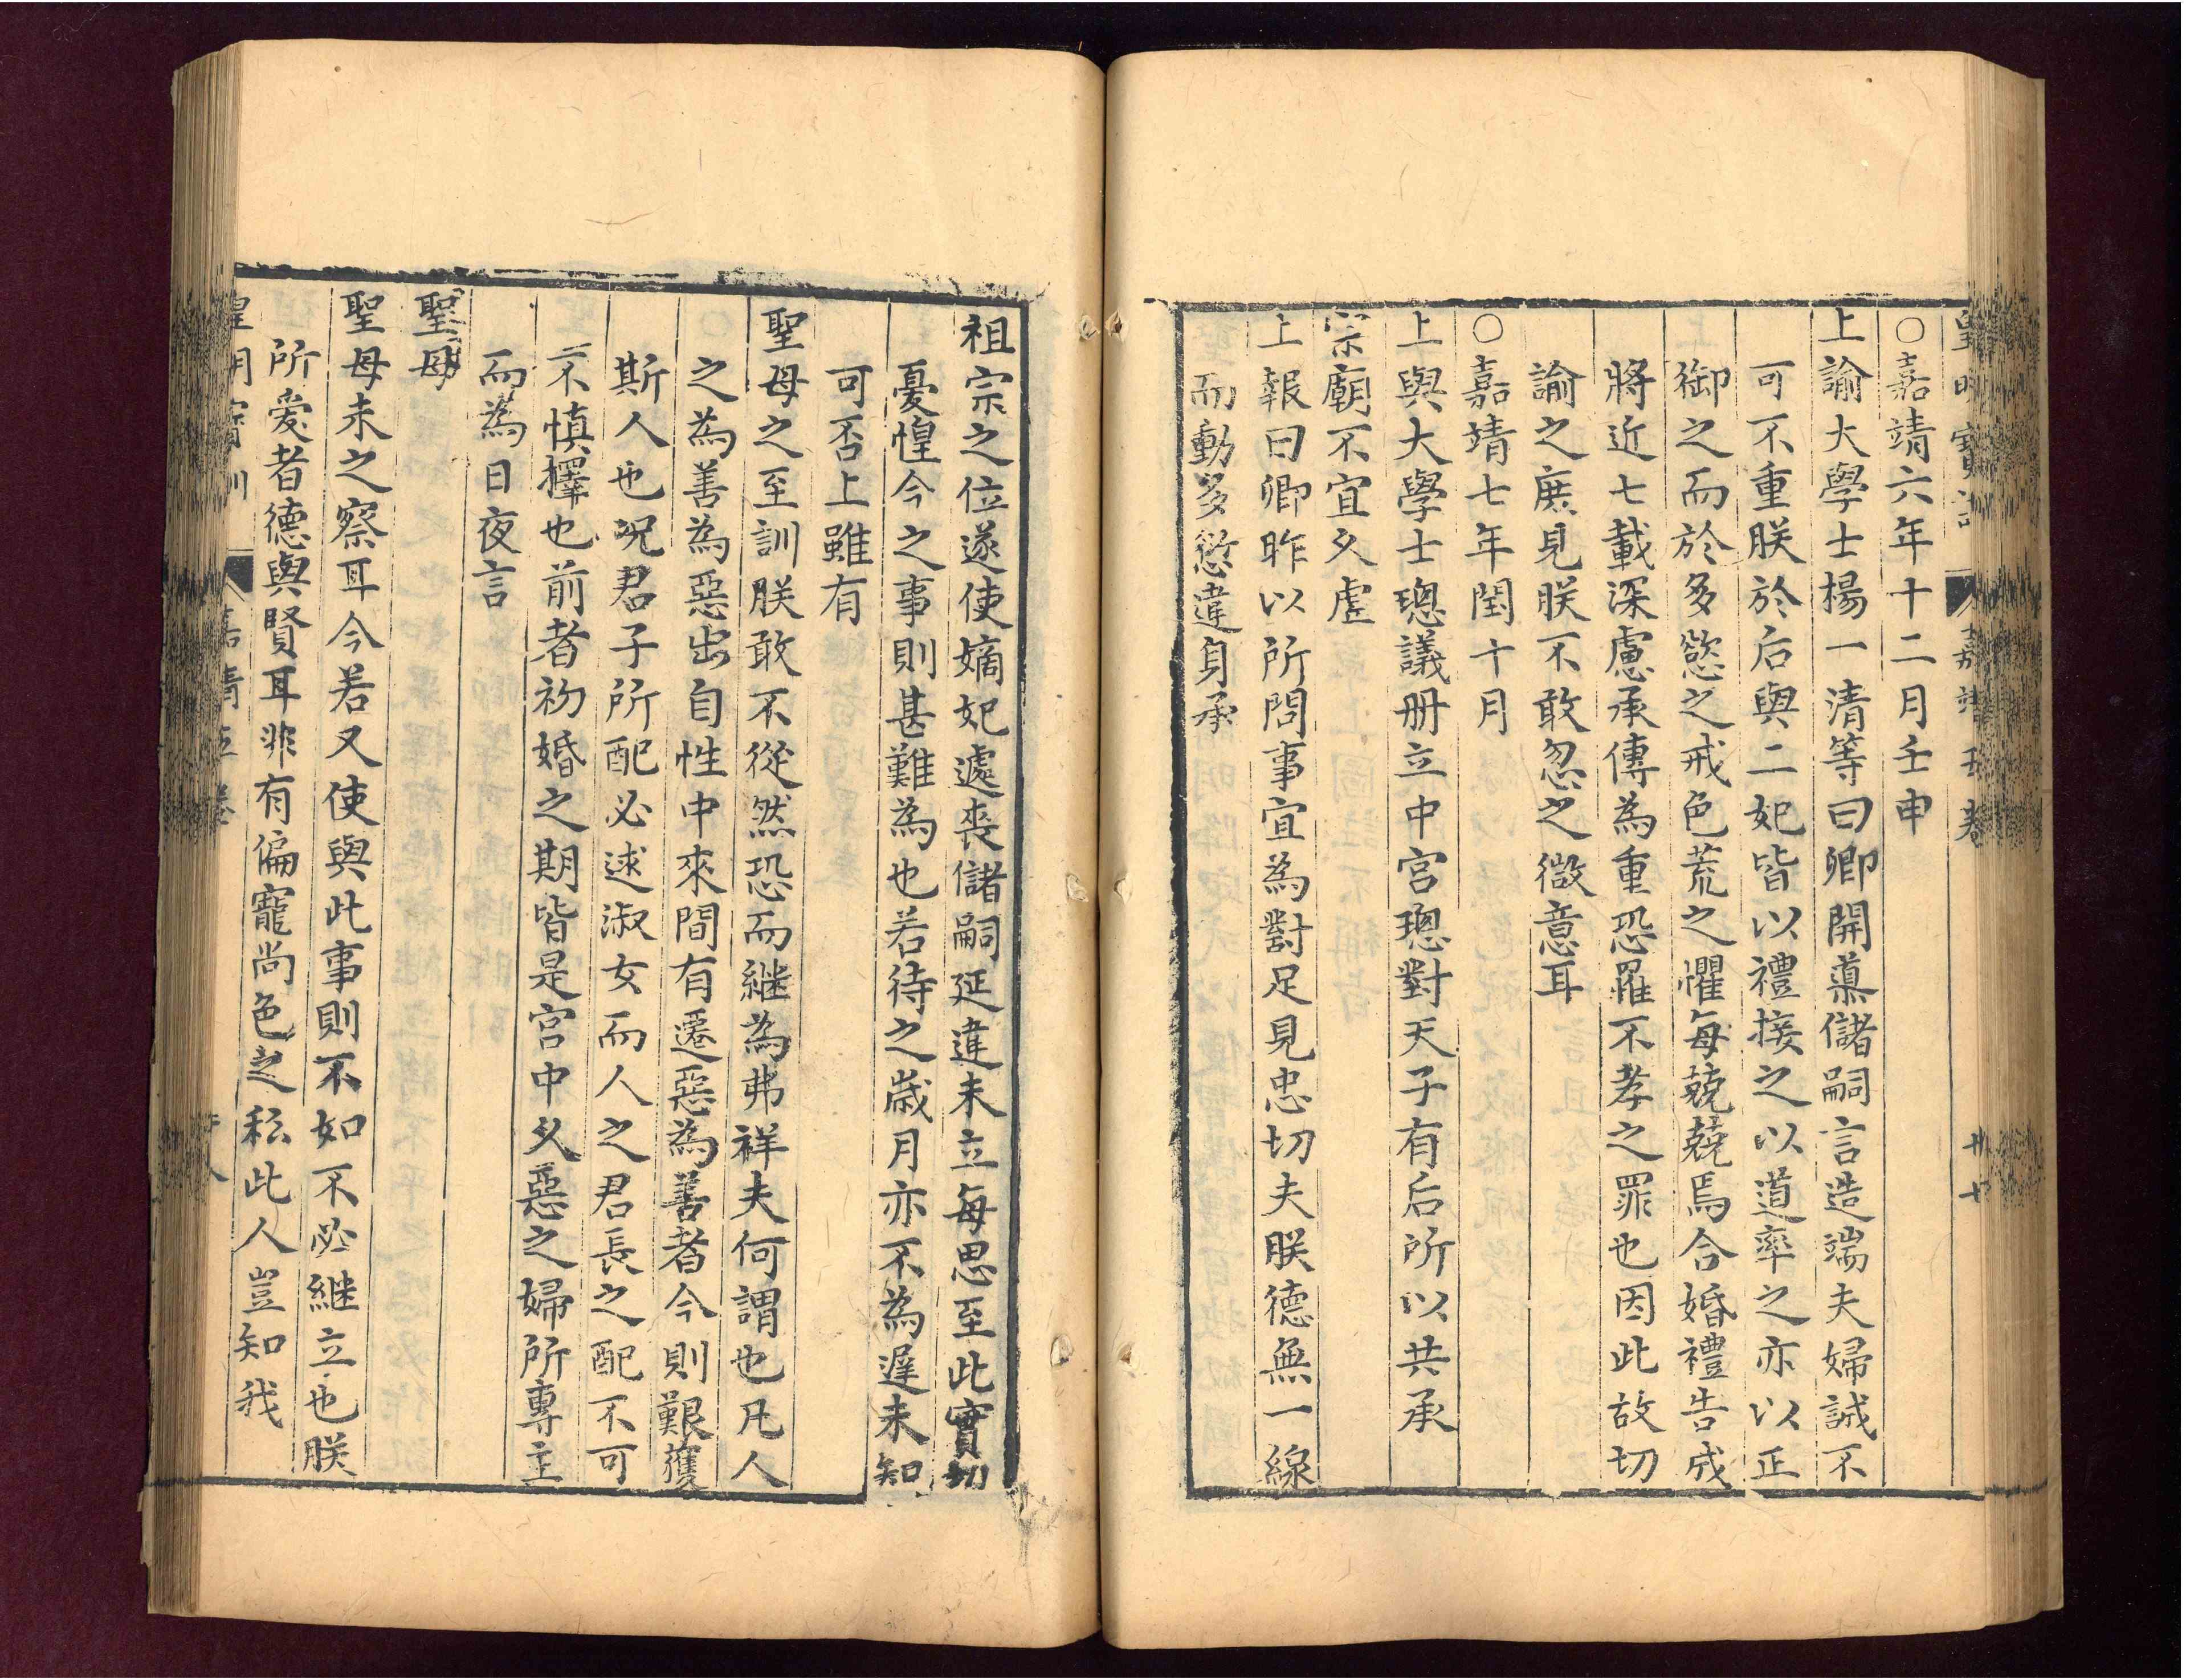 皇明寶訓 嘉靖五卷 廿七
○嘉靖六年十二月壬申
上諭大學士楊一清等曰卿開導儲嗣言造端夫婦誠不
可不重朕於后與二妃皆以禮接之以道率之亦以正
御之而於多慾之戒色荒之懼每兢兢焉合婚禮告成
將近七載深慮承傳為重恐罹不孝之罪也因此故切
諭之庶見朕不敢忽之微意耳
○嘉靖七年閏十月
上與大學士璁議冊立中宮璁對天子有后所以共承
宗廟不宜久虛
上報曰卿昨以所問事宜為對足見忠切夫朕德無一線
而動多愆違自承
祖宗之位遂使嫡妃處喪儲嗣延違未立每思至此實切
憂惶今之事則甚難為也若待之歲月亦不為遲未知
可否上雖有
聖母之至訓朕敢不從然恐而繼為弗祥夫何謂也凡人
之為善為惡出自性中來間有遷惡為善者今則艱獲
斯人也况君子所配必逑淑女而人之君長之配不可
不慎擇也前者初婚之期皆是宮中久惡之婦所專主
而為日夜言
聖母
聖母未之察耳今若又使與此事則不如不必継立也朕
所愛者德與賢耳非有偏寵尚色之私此人豈知我
皇明寶訓 嘉靖五卷 廿八